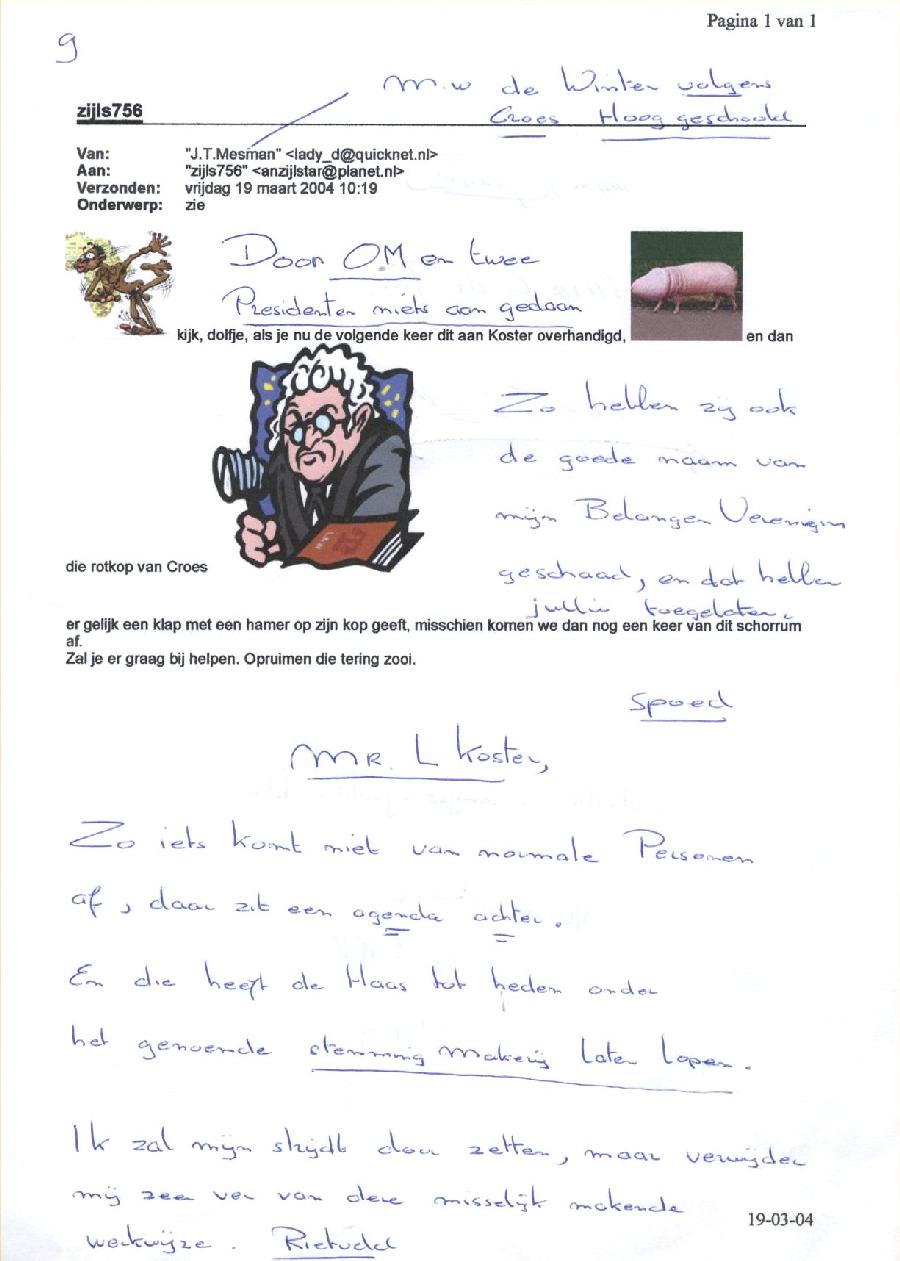 Pagina 1 van 1
9
M.w de Winter volgens
Croes Hoog geschoold
zijls756
Van: "J.T.Mesman" <lady_d@quicknet.nl>
Aan: "zijls756" <anzijlstar@planet.nl>
Verzonden: vrijdag 19 maart 2004 10:19
Onderwerp: zie
Door OM en twee
Presidenten niets aan gedaan
kijk, dolfje, als je nu de volgende keer dit aan Koster overhandigd, en dan
Zo hebben zij ook
de goede naam van
mijn Belangen Verenigin
geschaad, en dat hebben
jullie toegelaten.
die rotkop van Croes
er gelijk een klap met een hamer op zijn kop geeft, misschien komen we dan nog een keer van dit schorrum
af.
Zal je er graag bij helpen. Opruimen die tering zooi.
Spoed
MR. L Koster,
Zo iets komt niet van normale Personen
af, daar zit een agenda achter.
En die heeft de Haas tot heden onder
het genoemde stemming makerij laten lopen.
Ik zal mijn strijdt door zetten, maar verwijder
mij zeer ver van deze misselijk makende
werkwijze.
19-03-04